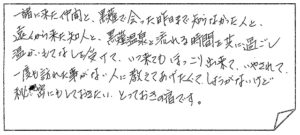 一諸に来た仲間と、黒薙で会った昨日まで知らなかった人と、
遠くから来た知人と、黒薙温泉と流れる時間を共に過ごし
湯がいもてなしも多くて、いつ来てもほっこり出来て、いやされて、
一度も訪れた事がない人に教えてあげたくてしょうがないけど
秘密にもしておきたい、とっておきの宿です。